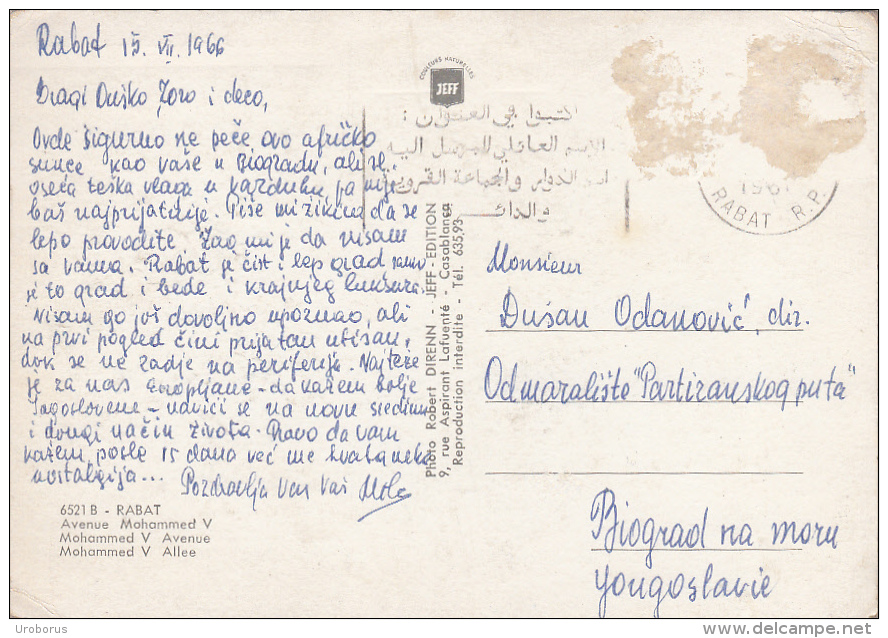 Rabat 15. VII. 1966
Dragi Duško, Zoro i deco,
Ovde sigurno ne peče ovo afričko
sunce kao vaše u Biogradu, ali se
oseća teška vlaga u vazduhu, pa nije
baš najprijatnije. Piše mi Žikica da se
lepo provodite. Žao mi je da nisam
sa vama. Rabat je čist i lep grad, samo
je to grad i bede i krajnjeg luksuza.
Nisam ga još dovoljno upoznao, ali
na prvi pogled čini prijatan utisak,
dok se ne zadje na periferije. Najteže
je za nas Evropljane - da kažem bolje
Jugoslovene - navići se na novu sredinu
i drugi način života. Pravo da vam
kažem, posle 15 dana već me hvata neka
nostalgija...
Pozdravlja Vas Vaš
6521 B - RABAT
Avenue Mohammed V
Mohammed V Avenue
Mohammed V Allee
COULEURS NATURELLES
JEFF
Photo Robert DIRENN - JEFF - EDITION
9, rue Aspirant Lafuenté - Casablanca
Reproduction interdite - Tél. 635,93
اكتبوا في العنوان :
الاسم العائلي للمرسل اليه
اسم الدوار والجماعة القروية
و الدائرة
196
RABAT R.P.
Monsieur
Dušan Odanović, dir.
Odmaralište "Partizanskog puta"
Biograd na moru
Yougoslavie
© Uroborus
delcampe.net